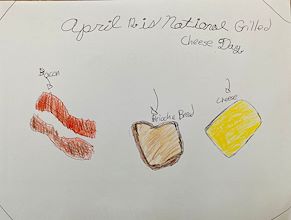 April 12 is National Grilled
Cheese Day
Bacon
Brioche Bread
cheese